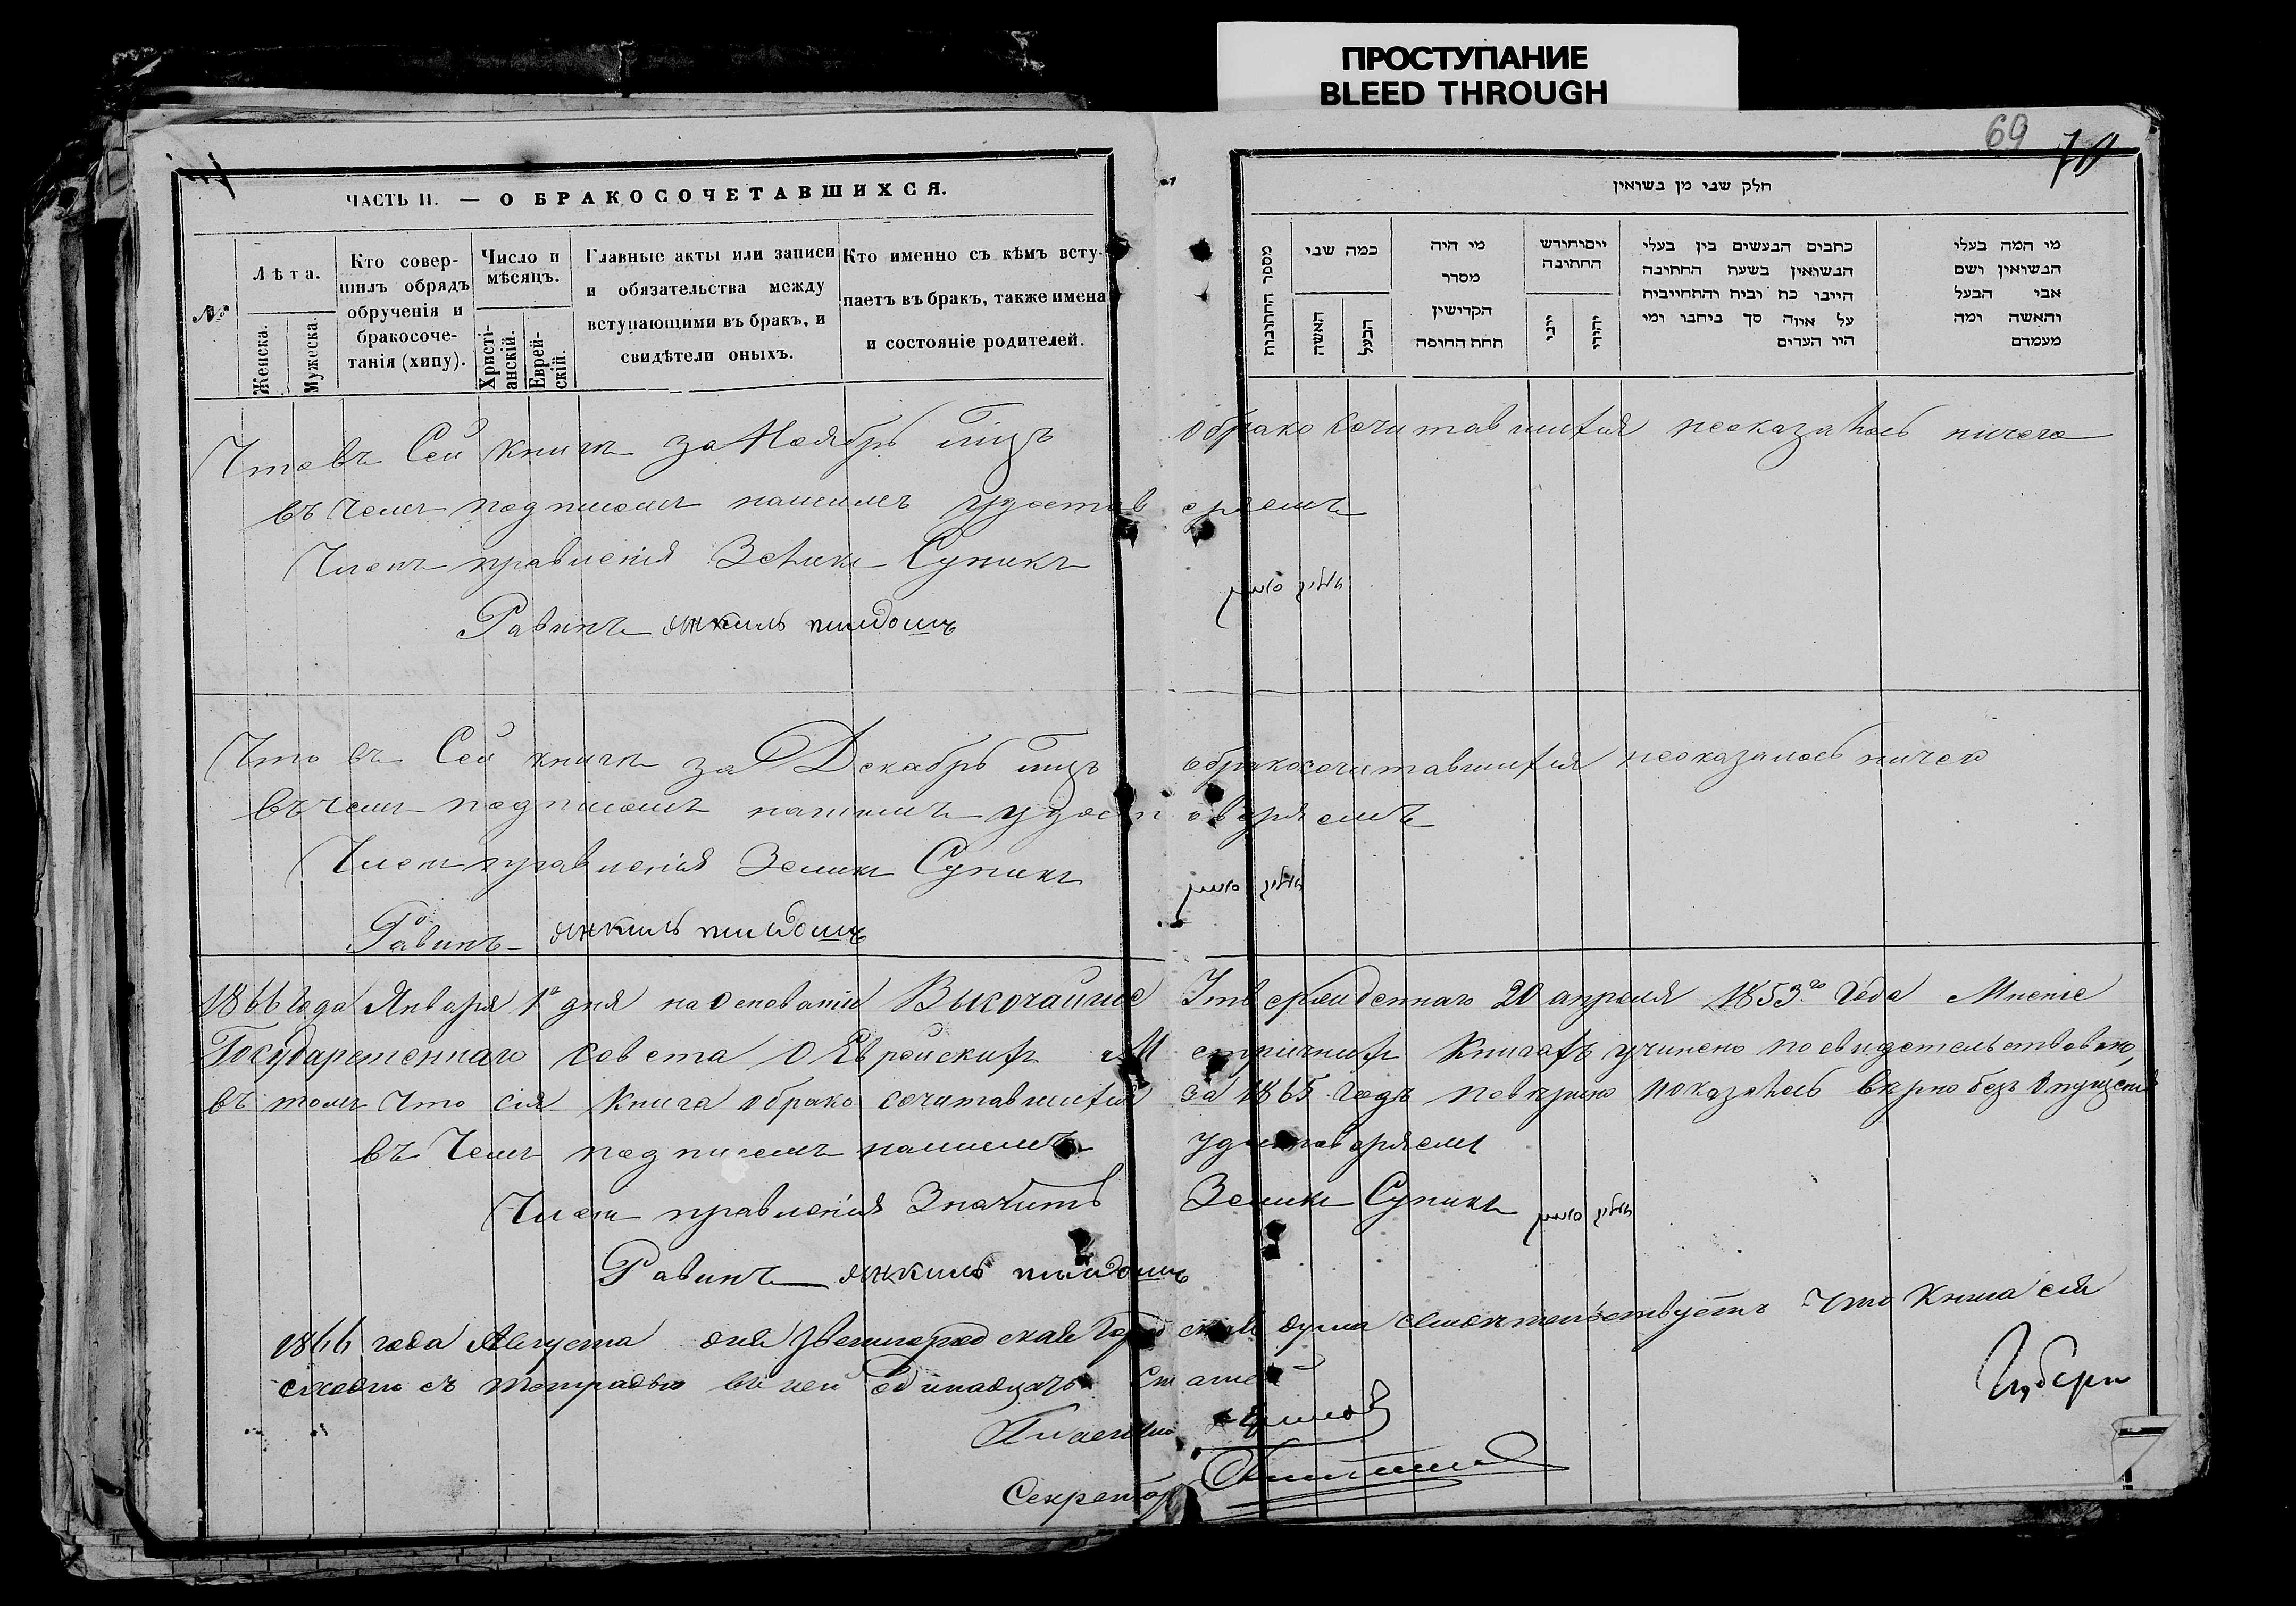 ПРОСТУПАНИЕ
BLEED THROUGH
69 70
ЧАСТЬ II. — О БРАКОСОЧЕТАВШИХСЯ.
№
Лѣта.
Женска.
Мужеска.
Кто совер-
шилъ обрядъ
обрученія и
бракосоче-
танія (хипу).
Число и
мѣсяцъ.
Христі-
анскій.
Еврей-
скій.
Главные акты или записи
и обязательства между
вступающими въ бракъ, и
свидѣтели оныхъ.
Кто именно съ кѣмъ всту-
паетъ въ бракъ, также имена
и состояніе родителей.
חלק שני מן נשואין
מספר החתונות
כמה שני
האשה
הבעל
מי היה
מסדר
הקדישין
תחת החופה
יום וחודש
החתונה
יוני
יהודי
כתבים הנעשים בין בעלי
הנשואין בשעת החתונה
היינו כת ובית והתחייבות
על איזה סך ביחבו ומי
היו העדים
מי המה בעלי
הנשואין ושם
אבי הבעל
והאשה ומה
מעמדם
Что въ Сей книгѣ за Ноябрь мцъ обракосочитавшихся неоказалось ничего
въ чемъ подписомъ нашимъ удостоверяемъ
Членъ правленія Зеликъ Супикъ
Равинъ янкиль
Что въ Сей книгѣ за Декабрь мцъ обракосочитавшихся неоказалось ничего
въ чемъ подписомъ нашимъ удостоверяемъ
Членъ правленія Зеликъ Супикъ
Равинъ янкиль
1866 года Января 1го дня на Основаніи Высочайше Утвержденнаго 20 апреля 1853го Года Мненіе
Государственнаго Совета О Еврейскихъ Метричнихъ Книгахъ учинено посвидетельствовано,
въ томъ Что сія Книга обракосочитавшихся за 1865 годъ поверено показалось верно безъ Опущенія
въ Чемъ подписемъ нашимъ удостоверяемъ
Членъ правленія Значитъ Зеликъ Супикъ
Равинъ янкиль
1866 года Августа дня Звенигородская Городская дума свидѣтельствуетъ Что Книга сія
сходна съ тетрадью въ ней Одинадцать Статей
Гласный
Секретарь
Губерн